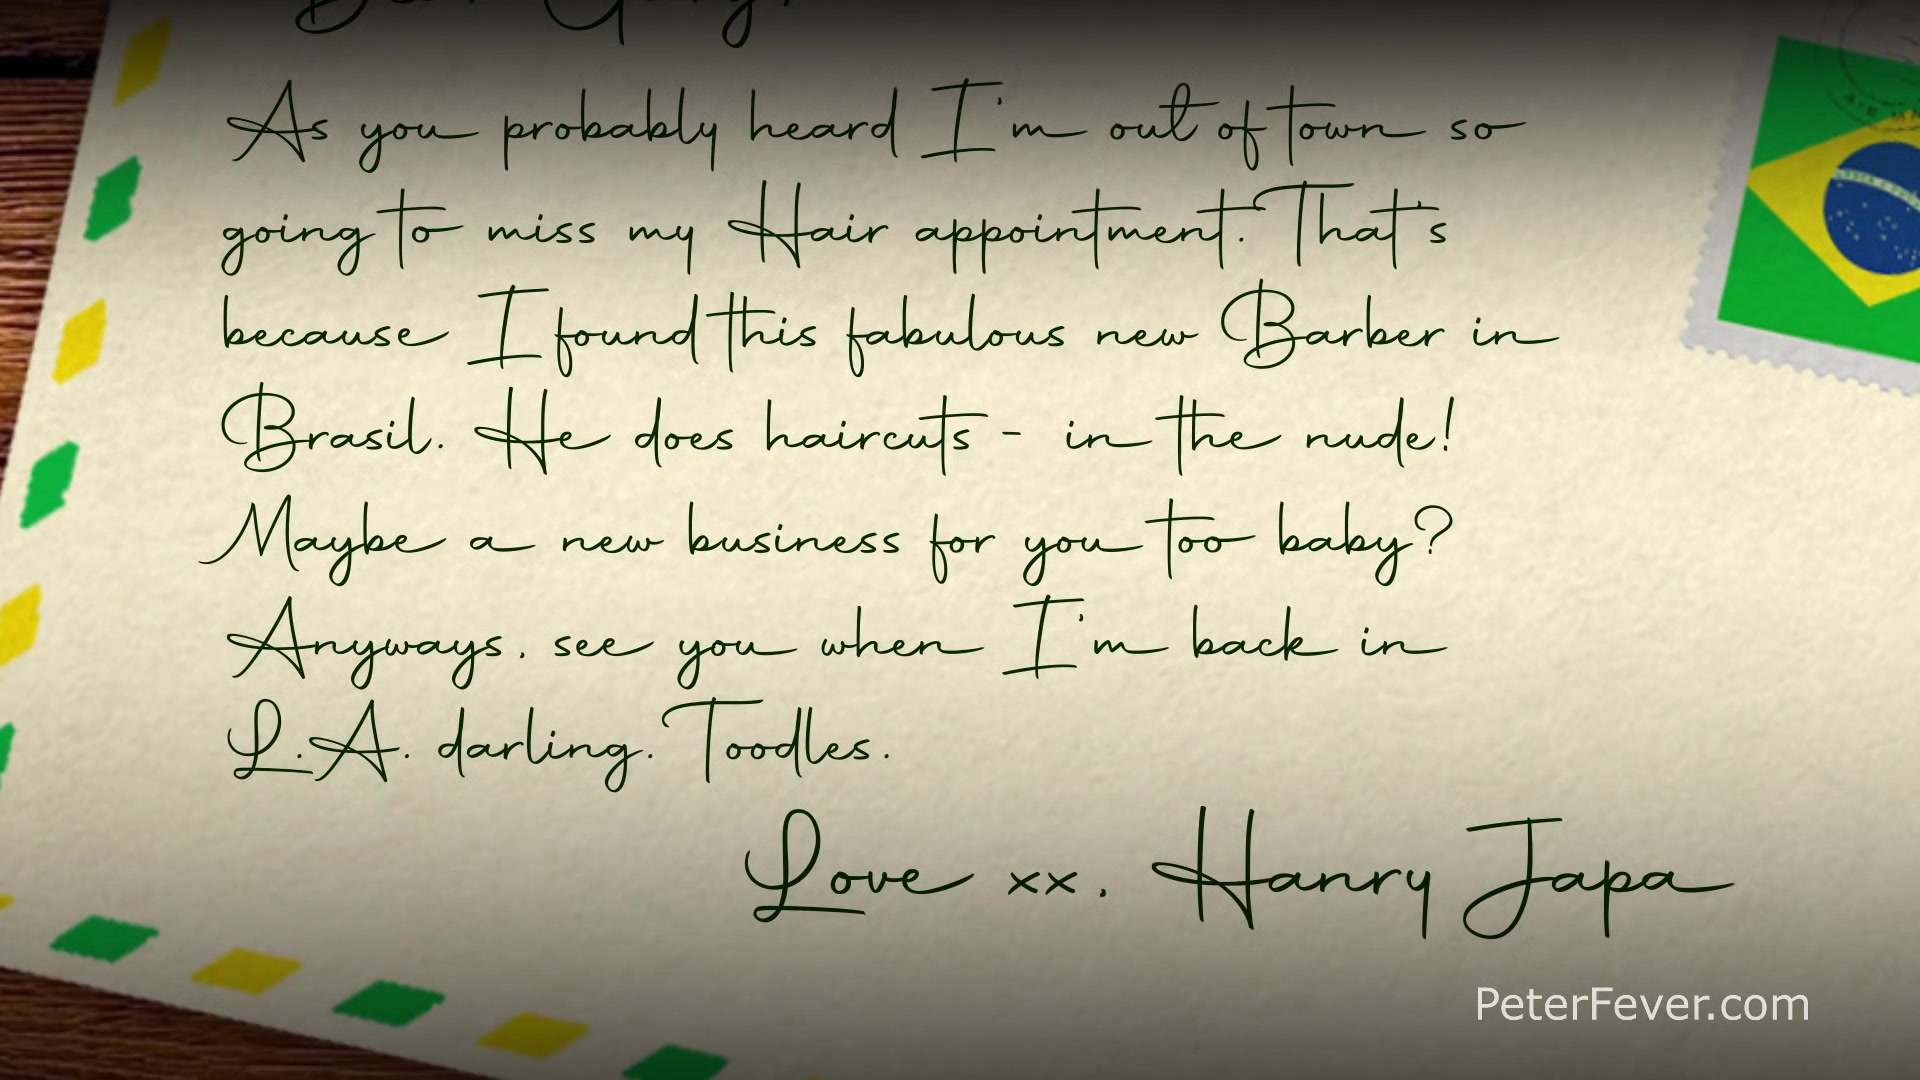 As you probably heard I'm out of town so
going to miss my Hair appointment. That's
because I found this fabulous new Barber in
Brasil. He does haircuts - in the nude!
Maybe a new business for you too baby?
Anyways, see you when I'm back in
L.A. darling. Toodles.
Love xx, Hanry Japa
PeterFever.com